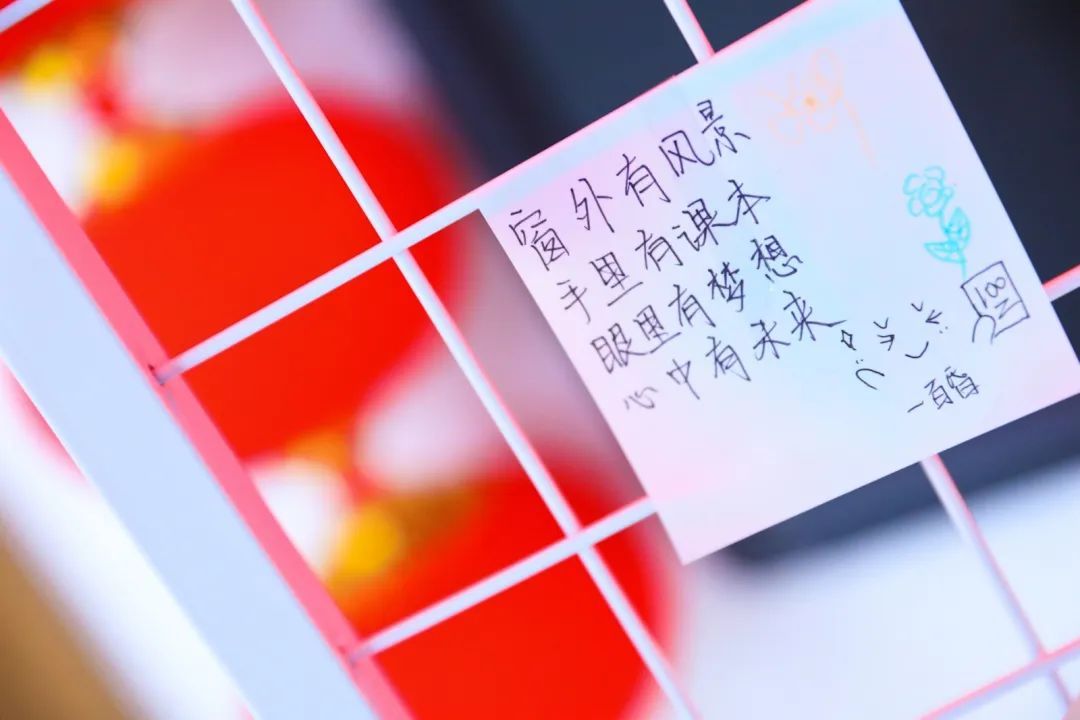 窗外有风景
手里有课本
眼里有梦想
心中有未来
100
一百昏